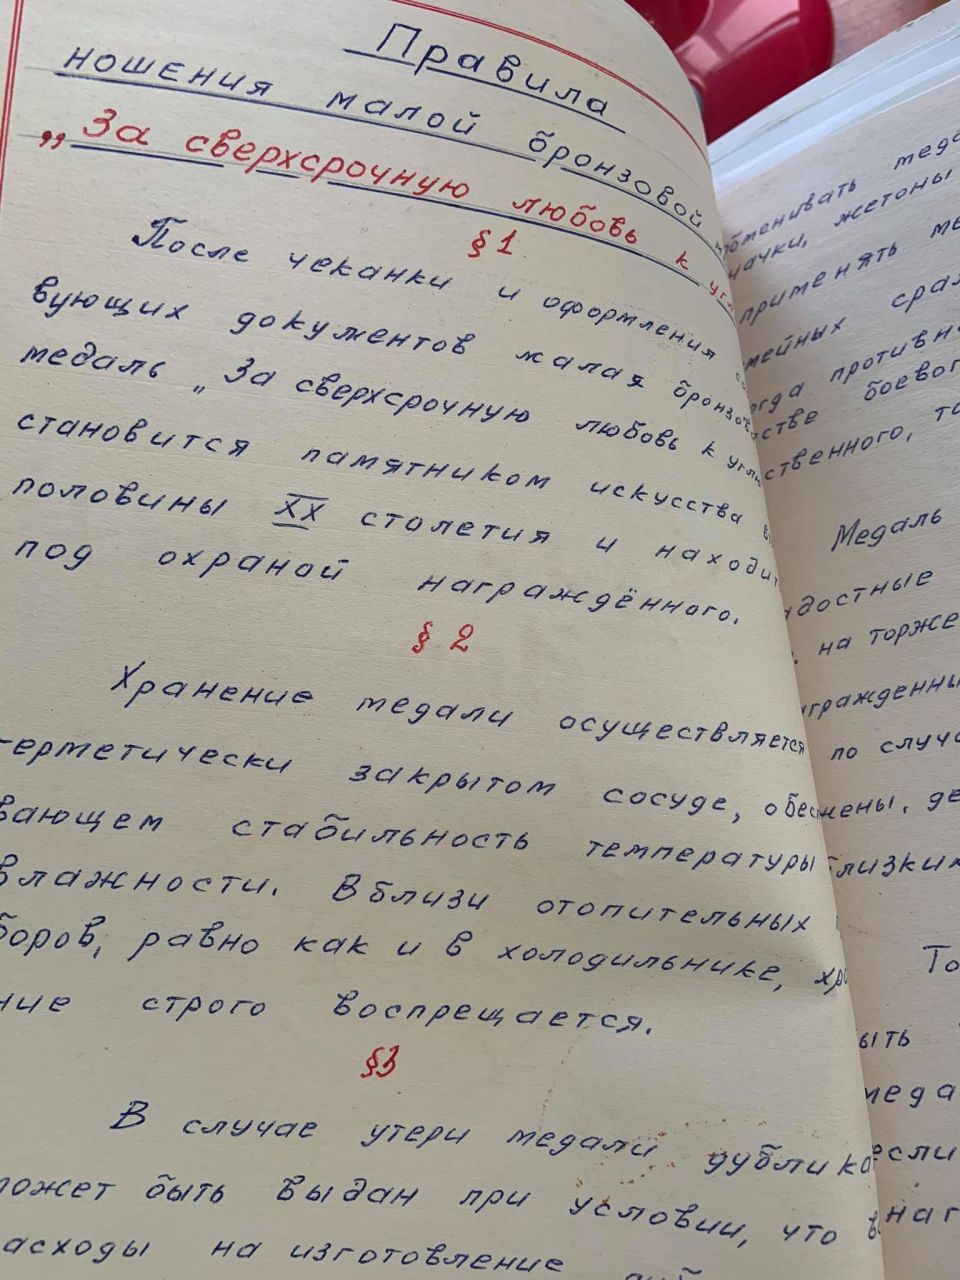 Правила
ношения малой бронзовой
„За сверхсрочную любовь к
§1
После чеканки и оформления
вующих документов малая
медаль „За сверхсрочную любовь к
становится памятником искусства
половины XX столетия и
под охраной награждённого.
§ 2
Хранение медали осуществляется
герметически закрытом сосуде,
вающем стабильность температуры
влажности. Вблизи отопительных
боров, равно как и в холодильнике,
ние строго воспрещается.
§3
В случае утери медали
может быть выдан при условии, что
асходы на изготовление
значки, жетоны
применять
боевог
Медаль
достные
на торже
по случа
жены, де
близким
То
ыть
меда
если
наг